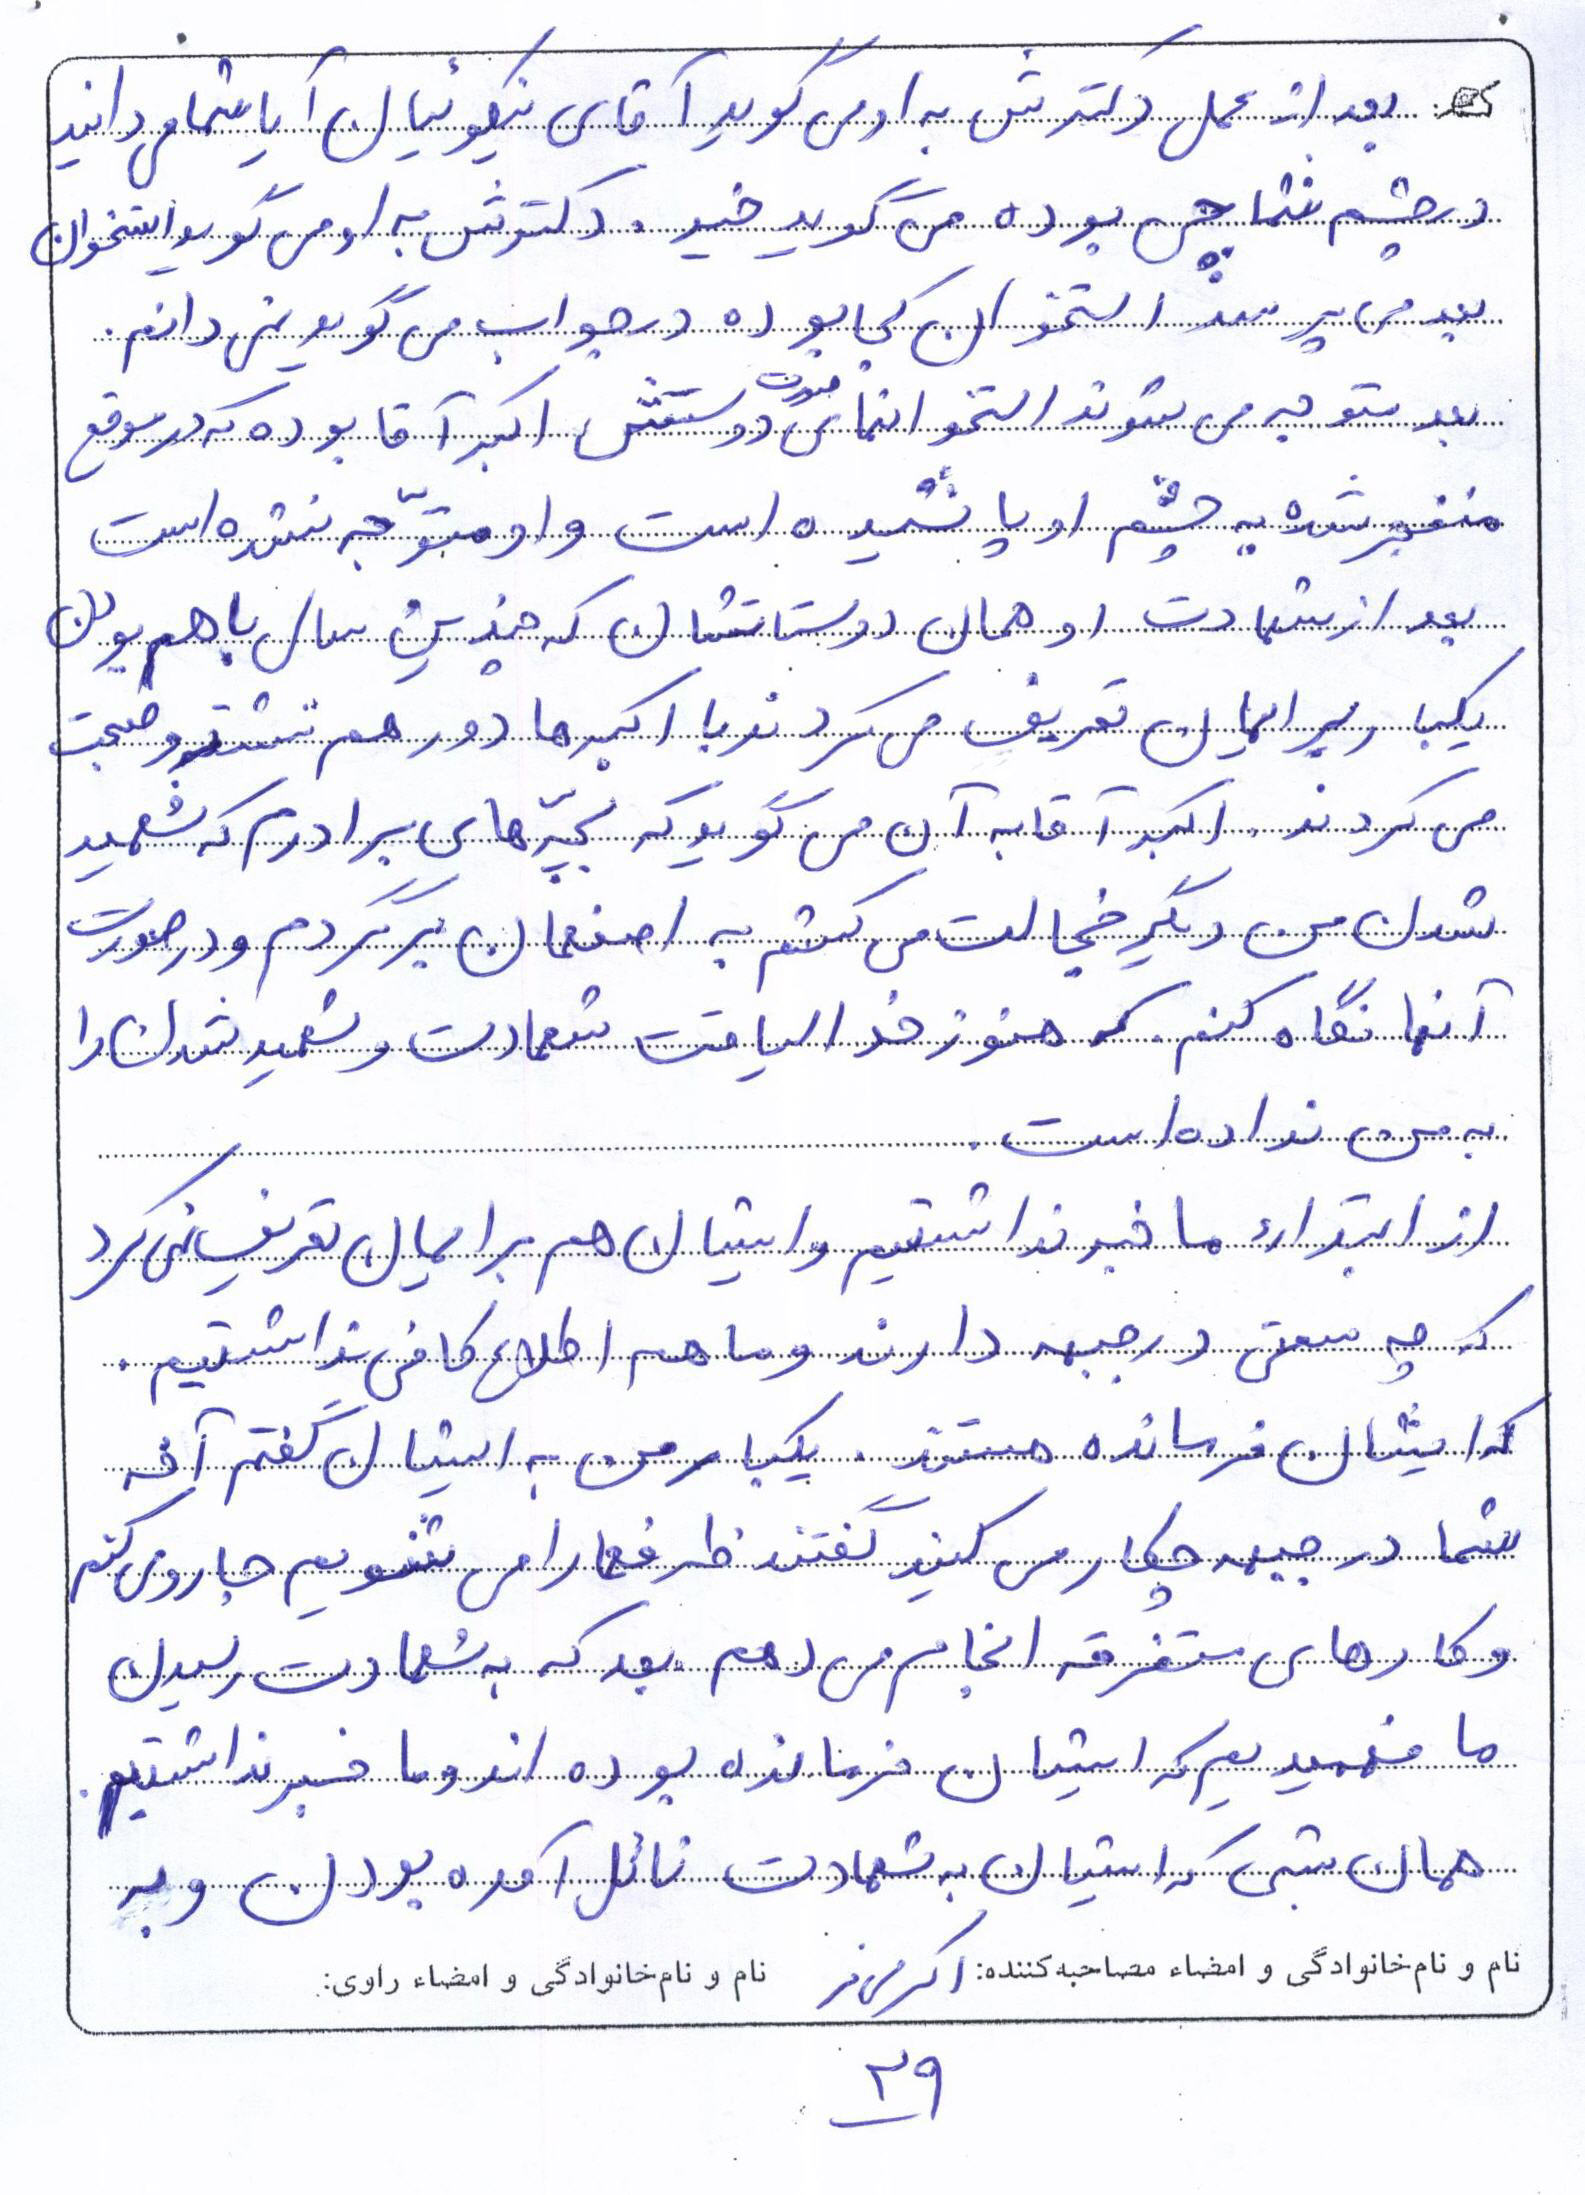 بعد از عمل دکترش به او می گوید آقای نیکوئیان آیا شما می دانید
در چشم شما چی بوده می گوید خیر. دکترش به او می گوید استخوان
بعد می پرسد استخوان کجا بوده در جواب می گوید نمی دانم.
بعد متوجه می شوند استخوانهای صورت دوستش اکبر آقا بوده که در موقع
منفجر شده به چشم او پاشیده است و او متوّجه نشده است
بعد از شهادت او همان دوستانشان که چندین سال باهم بودن
یکبار برایمان تعریف می کردند با اکبرها دور هم نشسته و صحبت
می کردند. اکبر آقا به آن می گوید که بچّه های برادرم که شهید
شدن من دیگر خجالت می کشم به اصفهان برگردم و در صورت
آنها نگاه کنم که هنوز خدا لیاقت شهادت و شهید شدن را
به من نداده است.
از ابتداء ما خبر نداشتیم و ایشان هم برایمان تعریف نمی کرد
که چه سمتی در جبهه دارند و ما هم اطلاع کافی نداشتیم.
که ایشان فرمانده هستند. یکبار من به ایشان گفتم آخه
شما در جبهه چکار می کنید گفتند ظرفها را می شویم جاروی کنم
و کارهای متفرقه انجام می دهم. بعد که به شهادت رسیدن
ما فهمیدیم که ایشان فرمانده بوده اند و ما خبر نداشتیم.
همان شبی که ایشان به شهادت نائل آمده بودن و به
نام و نام خانوادگی و امضاء مصاحبه کننده: نام و نام خانوادگی و امضاء راوی:
۲۹